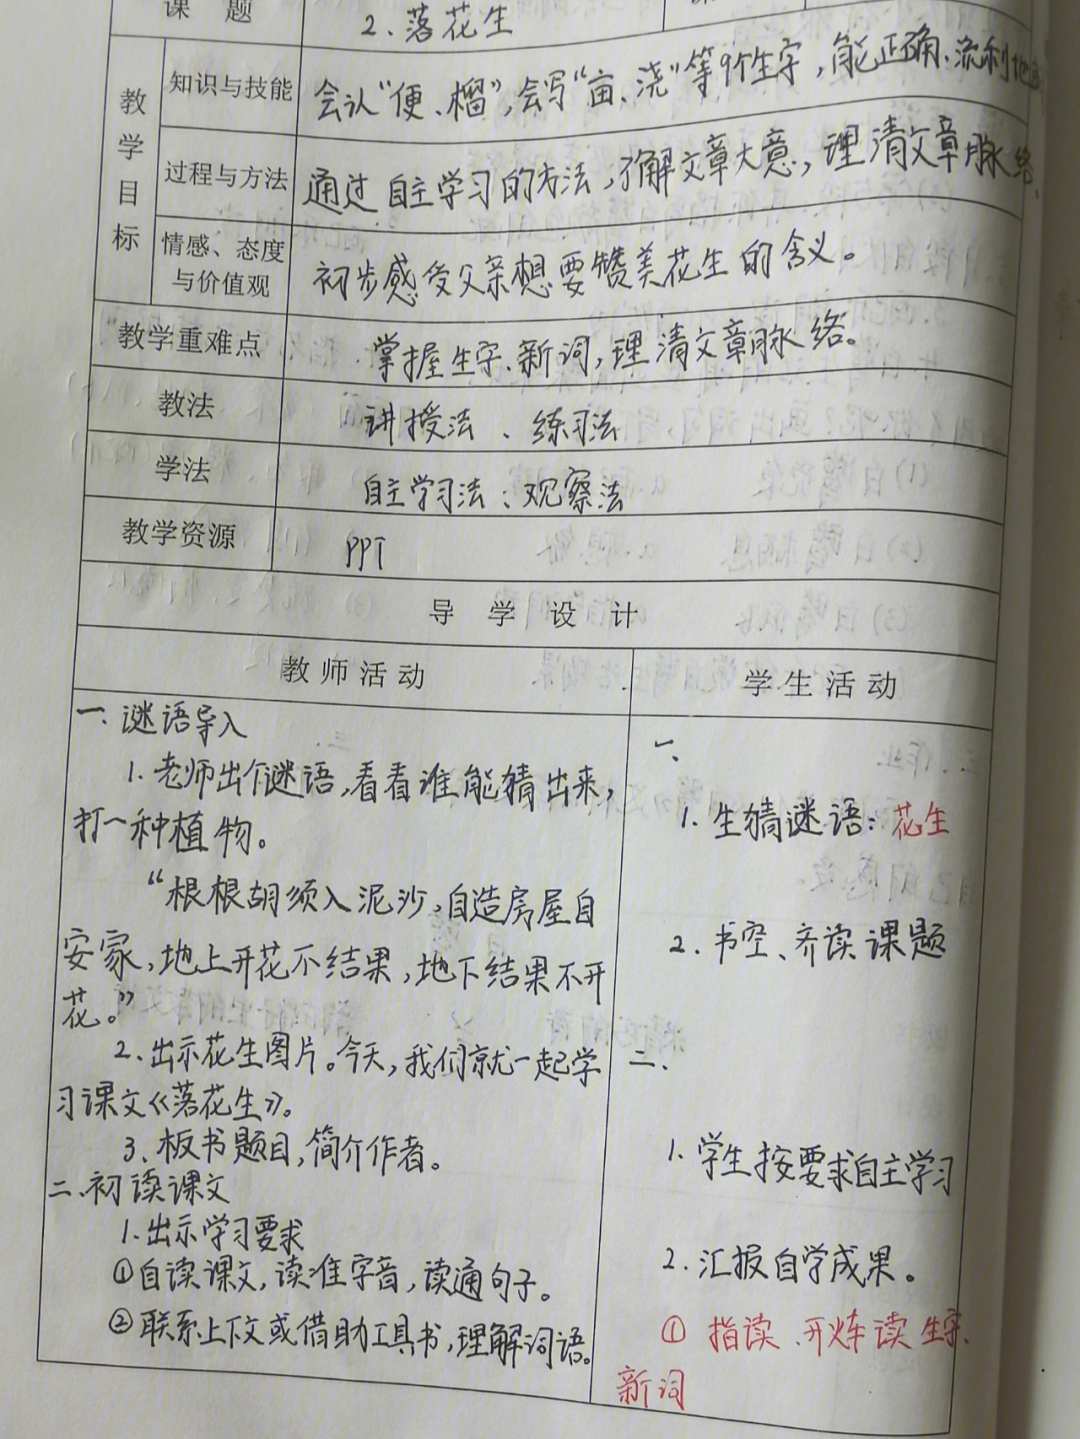 课 题
2. 落花生
教学目标
知识与技能
会认“便、榴”,会写“亩、浇”等9个生字,能正确、流利地
过程与方法
通过自主学习的方法,了解文章大意,理清文章脉络、
情感、态度
与价值观
初步感受父亲想要赞美花生的含义。
教学重难点
掌握生字、新词,理清文章脉络。
教法
讲授法、练习法
学法
自主学习法、观察法
教学资源
PPT
导 学 设 计
教师活动
学生活动
一、谜语导入
1. 老师出个谜语,看看谁能猜出来,
打一种植物。
“根根胡须入泥沙,自造房屋自
安家,地上开花不结果,地下结果不开
花。”
2. 出示花生图片。今天,我们就一起学
习课文《落花生》。
3. 板书题目,简介作者。
二、初读课文
1. 出示学习要求
①自读课文,读准字音,读通句子。
②联系上下文或借助工具书,理解词语。
一、
1. 生猜谜语:花生
2. 书空、齐读课题
二、
1. 学生按要求自主学习
2. 汇报自学成果。
① 指读、开火车读生字、
新词